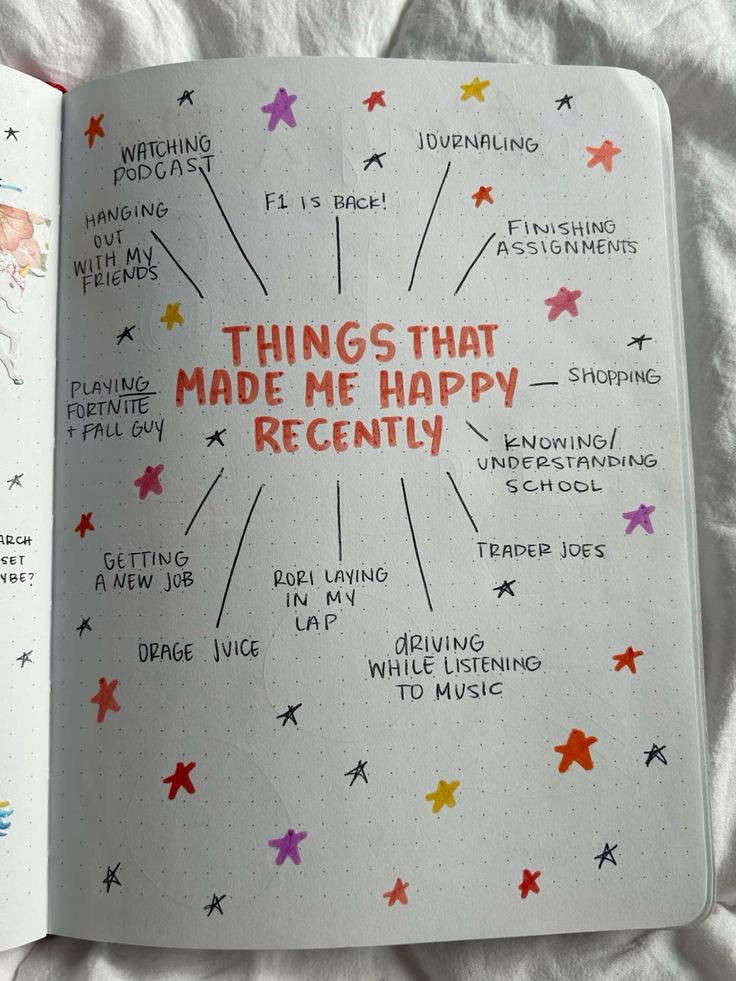 WATCHING
PODCAST
JOURNALING
F1 IS BACK!
HANGING
OUT
WITH MY
FRIENDS
FINISHING
ASSIGNMENTS
THINGS THAT
MADE ME HAPPY
RECENTLY
PLAYING
FORTNITE
+ FALL GUY
SHOPPING
KNOWING/
UNDERSTANDING
SCHOOL
GETTING
A NEW JOB
TRADER JOES
RORI LAYING
IN MY
LAP
ORAGE JUICE
DRIVING
WHILE LISTENING
TO MUSIC
ARCH
SET
YBE?